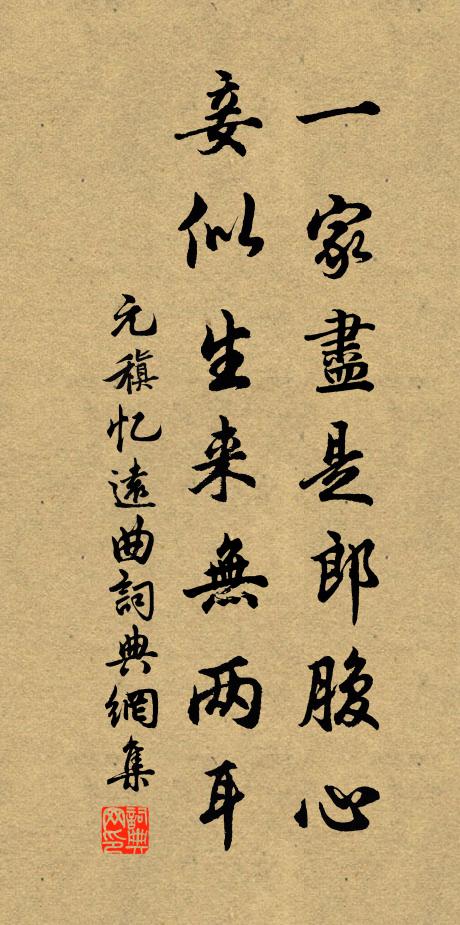 一家盡是郎腹心
妾似生来無两耳
元稹忆遠曲詞典網集
詞典网印